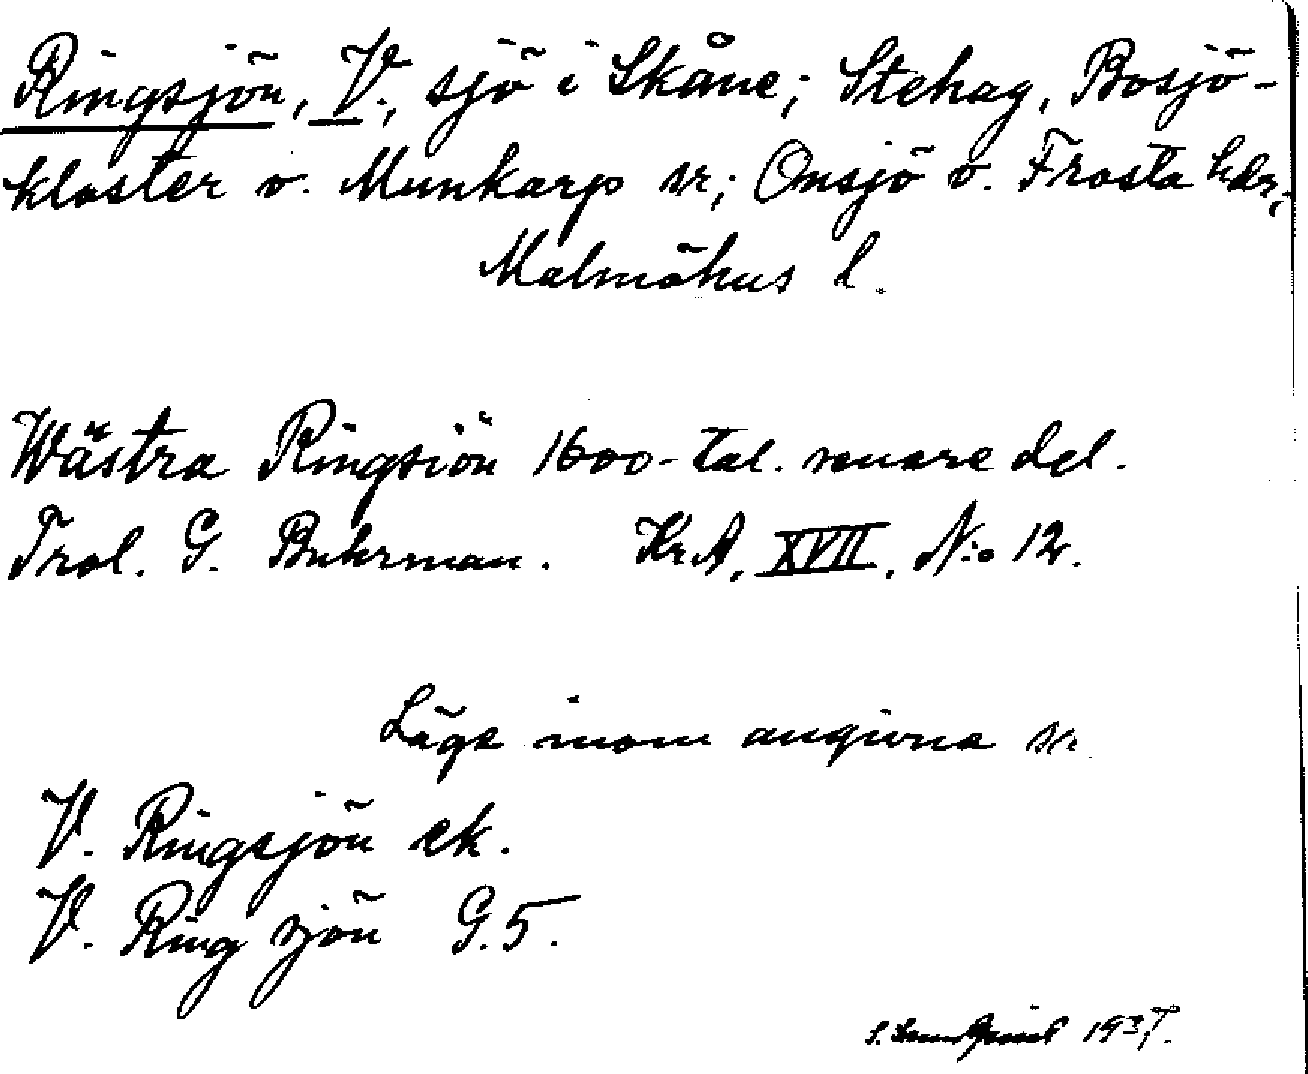 Ringsjön, V., sjö i Skåne; Stehag, Bosjö-
kloster o. Munkarp sr; Onsjö o. Frosta hdr;
Malmöhus l.
Wästra Ringsiön 1600-tal. senare del.
Trol. G. Buhrman. Kr.A. XVII, N:o 12.
Läge inom angivna sr
V. Ringsjön ek.
V. Ring sjön G.5.
1937.